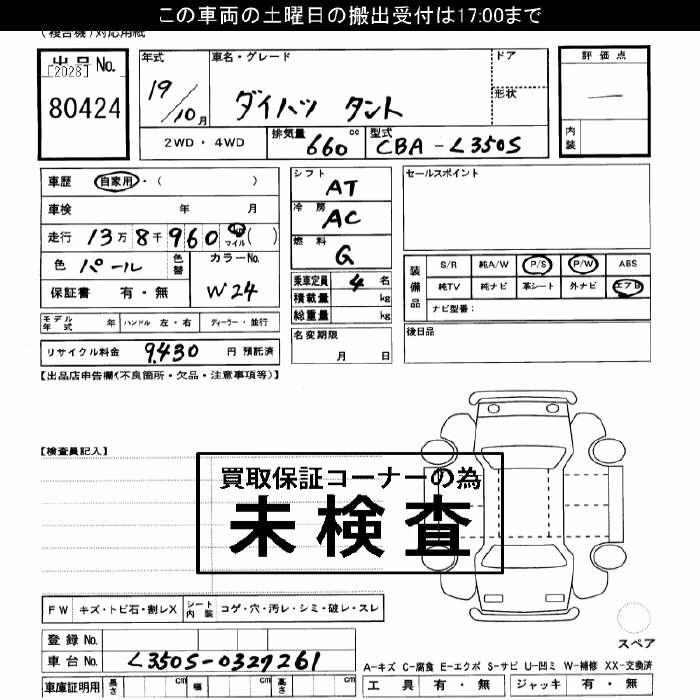 この車両の土曜日の搬出受付は17:00まで
(複合機)対応用紙
出品No.
[2028]
80424
年式
19/10月
車名・グレード
ダイハツ タント
ドア
形状
評価点
—
内装
2WD・4WD
排気量 660 cc
型式 CBA-L350S
車歴 自家用・( )
車検 年 月
走行 13万8千960 km マイル( )
色 パール 色替
カラーNo. W24
保証書 有・無
シフト AT
冷房 AC
燃料 G
乗車定員 4 名
積載量 kg
総重量 kg
セールスポイント
装備品
S/R 純A/W P/S P/W ABS
純TV 純ナビ 革シート 外ナビ エアB
ナビ型番:
モデル年式 年 ハンドル 左・右 ディーラー・並行
名変期限
月 日
後日品
リサイクル料金 9,430 円 預託済
【出品店申告欄(不良箇所・欠品・注意事項等)】
【検査員記入】
買取保証コーナーの為
未検査
FW キズ・トビ石・割レX シート内装 コゲ・穴・汚レ・シミ・破レ・スレ
登録No.
車台No. L350S-0327261
車庫証明用 長さ cm 幅 cm 高さ cm
スペア
A-キズ C-腐食 E-エクボ S-サビ U-凹ミ W-補修 XX-交換済
工具 有・無 ジャッキ 有・無